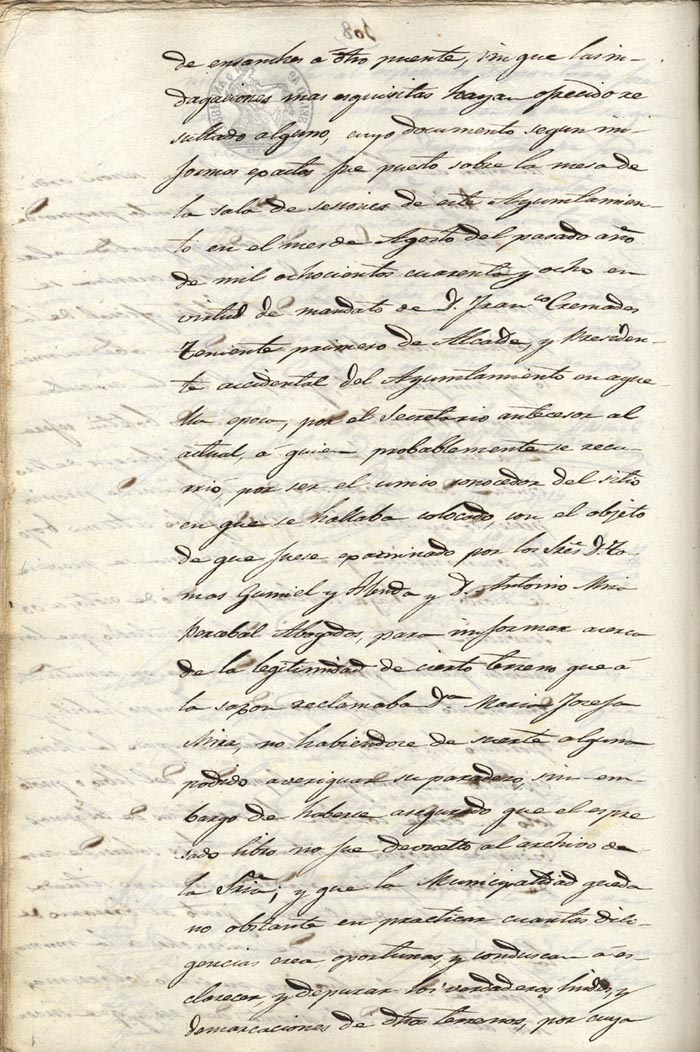 de ensanches a dtro puente, sin que las in-
dagaciones mas esquisitas hayan ofrecido re
sultado alguno, cuyo documento segun in-
formes exactos fue puesto sobre la mesa de
la sala de sesiones de este Ayuntamien-
to en el mes de Agosto del pasado año
de mil ochocientos cuarenta y ocho en
virtud de mandato de D. Franco Cremades
Teniente primero de Alcalde, y Presiden-
te accidental del Ayuntamiento en aque
lla epoca, por el Secretario antecesor al
actual, a quien probablemente se recu-
rrió, por ser el unico conocedor del sitio
en que se hallaba colocado, con el objeto
de que fuese examinado por los Sres D. To
mas Gumiel y D. Antonio Mira
Percebal Abogados, para informar acerca
de la legitimidad de cierto terreno que á
la sazon reclamaba Da Maria Josefa
Mira, no habiendose de suerte alguna
podido averiguar su paradero, sin em-
bargo de haberse asegurado que el espre
sado libro no fue devuelto al archivo de
la Sria; y que la Municipalidad queda
no obstante en practicar cuantas dili-
gencias crea oportunas, y conduscan á es-
clarecer, y depurar los verdaderos lindes, y
demarcaciones de dtro terrenos, por cuya